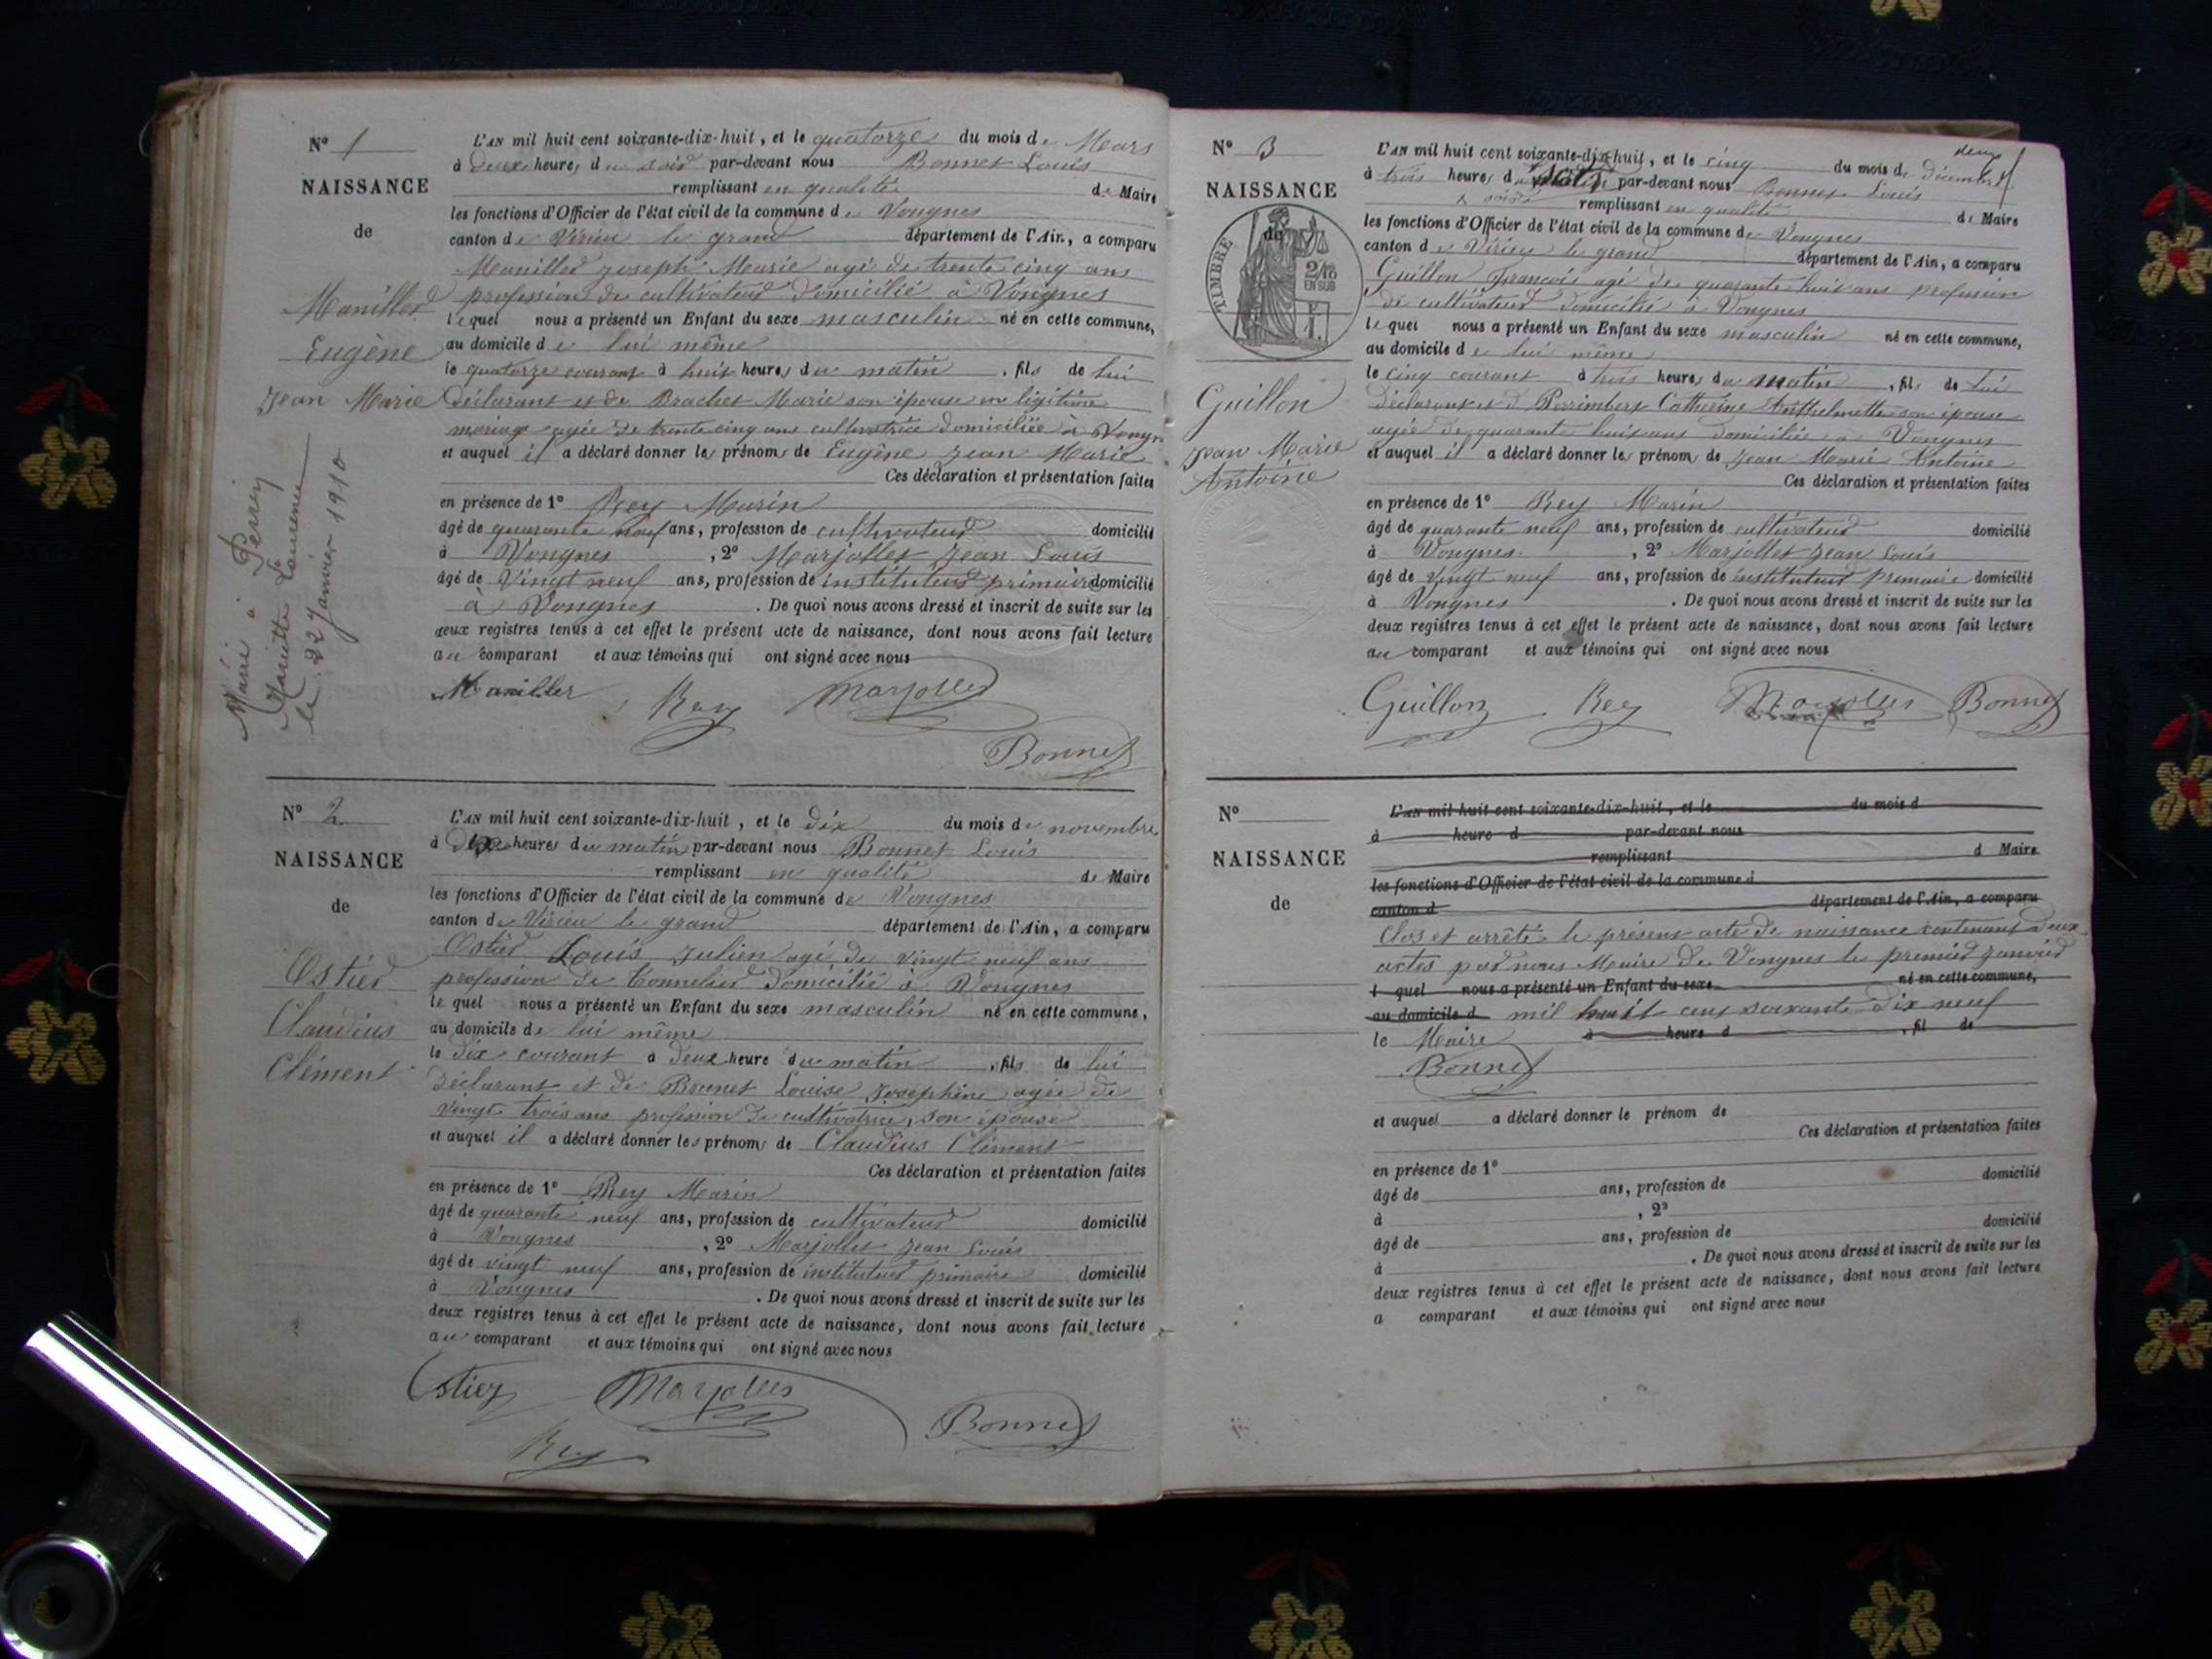 N° 1
NAISSANCE
de
Manillier
Eugène
Jean Marie
Marié à Peney
Mariette Laurence
le 22 Janvier 1910
L'AN mil huit cent soixante-dix-huit, et le quatorze du mois de Mars
à deux heures du soir par-devant nous Bonnet Louis
remplissant en qualité de Maire
les fonctions d'Officier de l'état civil de la commune de Vongnes
canton de Virieu le grand département de l'Ain, a comparu
Manillier Joseph Marie agé de trente cinq ans
profession de cultivateur domicilié à Vongnes
lequel nous a présenté un Enfant du sexe masculin né en cette commune,
au domicile de lui même
le quatorze courant à huit heures du matin, fils de lui
déclarant et de Brachet Marie son épouse en légitime
mariage agée de trente cinq ans cultivatrice domiciliée à Vongnes
et auquel il a déclaré donner les prénoms de Eugène Jean Marie
Ces déclaration et présentation faites
en présence de 1° Rey Marin
âgé de quarante neuf ans, profession de cultivateur domicilié
à Vongnes, 2° Marjollet Jean Louis
âgé de Vingt neuf ans, profession de instituteur primaire domicilié
à Vongnes. De quoi nous avons dressé et inscrit de suite sur les
deux registres tenus à cet effet le présent acte de naissance, dont nous avons fait lecture
au comparant et aux témoins qui ont signé avec nous
Manillier Rey Marjollet
Bonnet
N° 2
NAISSANCE
de
Ostier
Claudius
Clément
L'AN mil huit cent soixante-dix-huit, et le dix du mois de novembre
à heures du matin par-devant nous Bonnet Louis
remplissant en qualité de Maire
les fonctions d'Officier de l'état civil de la commune de Vongnes
canton de Virieu le grand département de l'Ain, a comparu
Ostier Louis Julien agé de vingt neuf ans
profession de Tonnelier domicilié à Vongnes
lequel nous a présenté un Enfant du sexe masculin né en cette commune,
au domicile de lui même
le dix courant à deux heure du matin, fils de lui
déclarant et de Brunet Louise Josephine agée de
vingt trois ans profession de cultivatrice, son épouse
et auquel il a déclaré donner les prénoms de Claudius Clément
Ces déclaration et présentation faites
en présence de 1° Rey Marin
âgé de quarante neuf ans, profession de cultivateur domicilié
à Vongnes, 2° Marjollet Jean Louis
âgé de vingt neuf ans, profession de instituteur primaire domicilié
à Vongnes. De quoi nous avons dressé et inscrit de suite sur les
deux registres tenus à cet effet le présent acte de naissance, dont nous avons fait lecture
au comparant et aux témoins qui ont signé avec nous
Ostier Marjollet
Bonnet
Rey
N° 3
NAISSANCE
de
TIMBRE
2/10
EN SUS
1 F.
Guillon
Jean Marie
Antoine
L'AN mil huit cent soixante-dix-huit, et le cinq du mois de décembre
à trois heures du par-devant nous Bonnet Louis
soir remplissant en qualité de Maire
les fonctions d'Officier de l'état civil de la commune de Vongnes
canton de Virieu le grand département de l'Ain, a comparu
Guillon François agé de quarante huit ans profession
de cultivateur domicilié à Vongnes
lequel nous a présenté un Enfant du sexe masculin né en cette commune,
au domicile de lui même
le cinq courant à trois heures du matin, fils de lui
déclarant et d Perrimbert Catherine Anthelmette son épouse
agée de quarante huit ans domiciliée à Vongnes
et auquel il a déclaré donner les prénoms de Jean Marie Antoine
Ces déclaration et présentation faites
en présence de 1° Rey Marin
âgé de quarante neuf ans, profession de cultivateur domicilié
à Vongnes, 2° Marjollet Jean Louis
âgé de vingt neuf ans, profession de instituteur primaire domicilié
à Vongnes. De quoi nous avons dressé et inscrit de suite sur les
deux registres tenus à cet effet le présent acte de naissance, dont nous avons fait lecture
au comparant et aux témoins qui ont signé avec nous
Guillon Rey Marjollet Bonnet
N°
NAISSANCE
de
L'AN mil huit cent soixante-dix-huit, et le du mois d
à heure d par-devant nous
remplissant d Maire
les fonctions d'Officier de l'état civil de la commune d
canton d département de l'Ain, a comparu
Clos et arrêté le présent acte de naissance contenant deux
actes par nous Maire de Vongnes le premier janvier
l quel nous a présenté un Enfant du sexe né en cette commune,
au domicile d mil huit cent soixante dix neuf
le Maire à heure d, fil de
Bonnet
et auquel a déclaré donner le prénom de
Ces déclaration et présentation faites
en présence de 1°
âgé de ans, profession de domicilié
à, 2°
âgé de ans, profession de domicilié
à. De quoi nous avons dressé et inscrit de suite sur les
deux registres tenus à cet effet le présent acte de naissance, dont nous avons fait lecture
a comparant et aux témoins qui ont signé avec nous